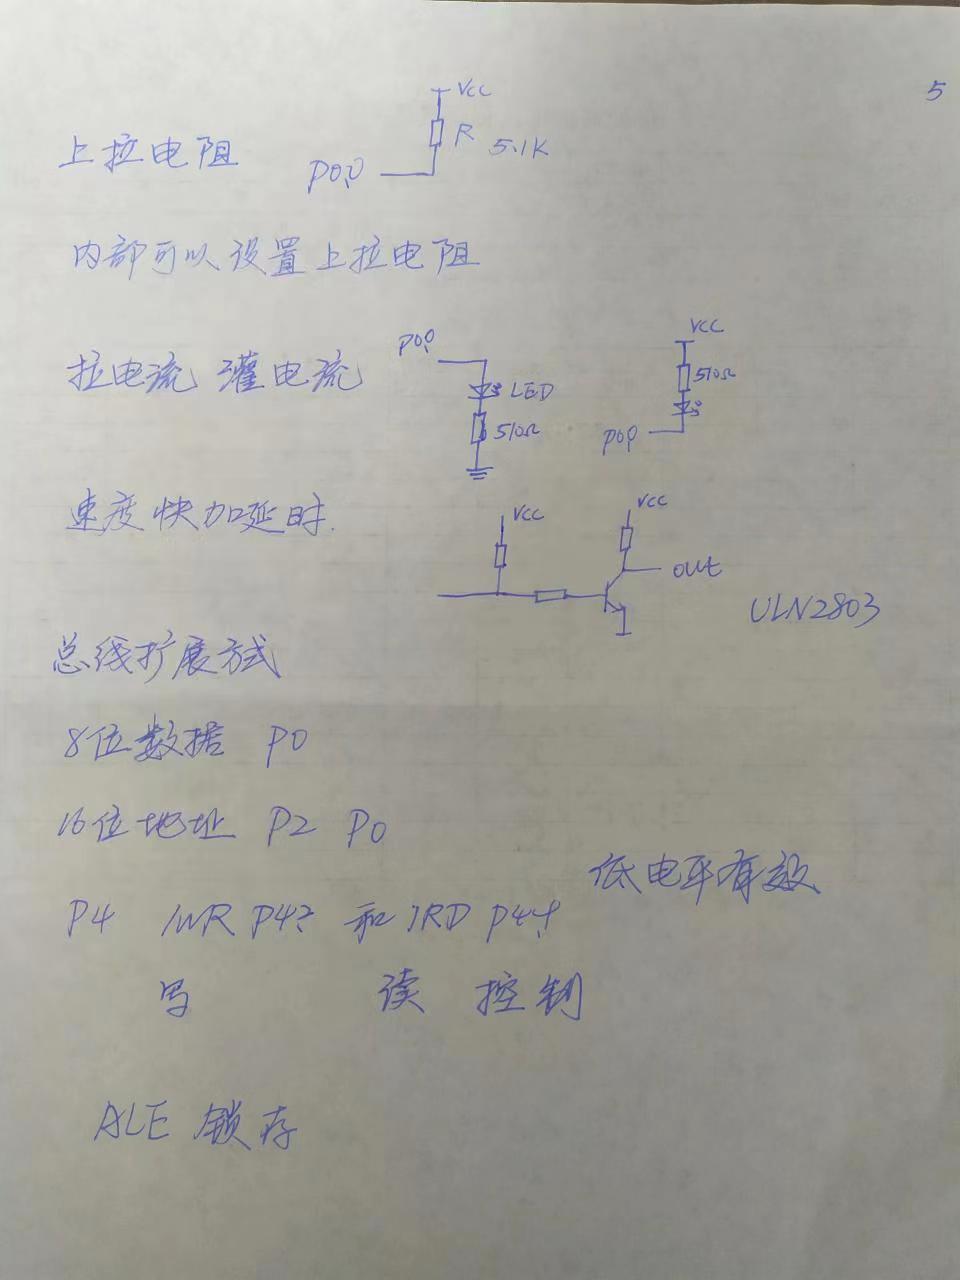 5
VCC
上拉电阻 P0.0 R 5.1K
内部可以设置上拉电阻
VCC
拉电流 灌电流 P0.0 LED 510Ω 510Ω P0.0
速度快加延时. VCC VCC
out
ULN2803
总线扩展方式
8位数据 P0
16位地址 P2 P0
低电平有效
P4 /WR P4.2 和 /RD P4.4
写 读 控制
ALE 锁存